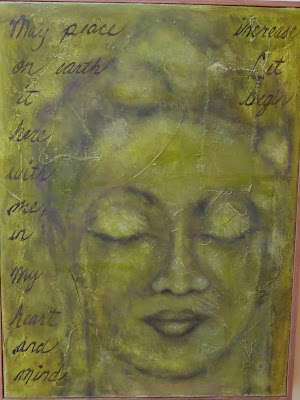 May peace increase
on earth Let
it begin
here
with
me,
in
My
heart
and
mind